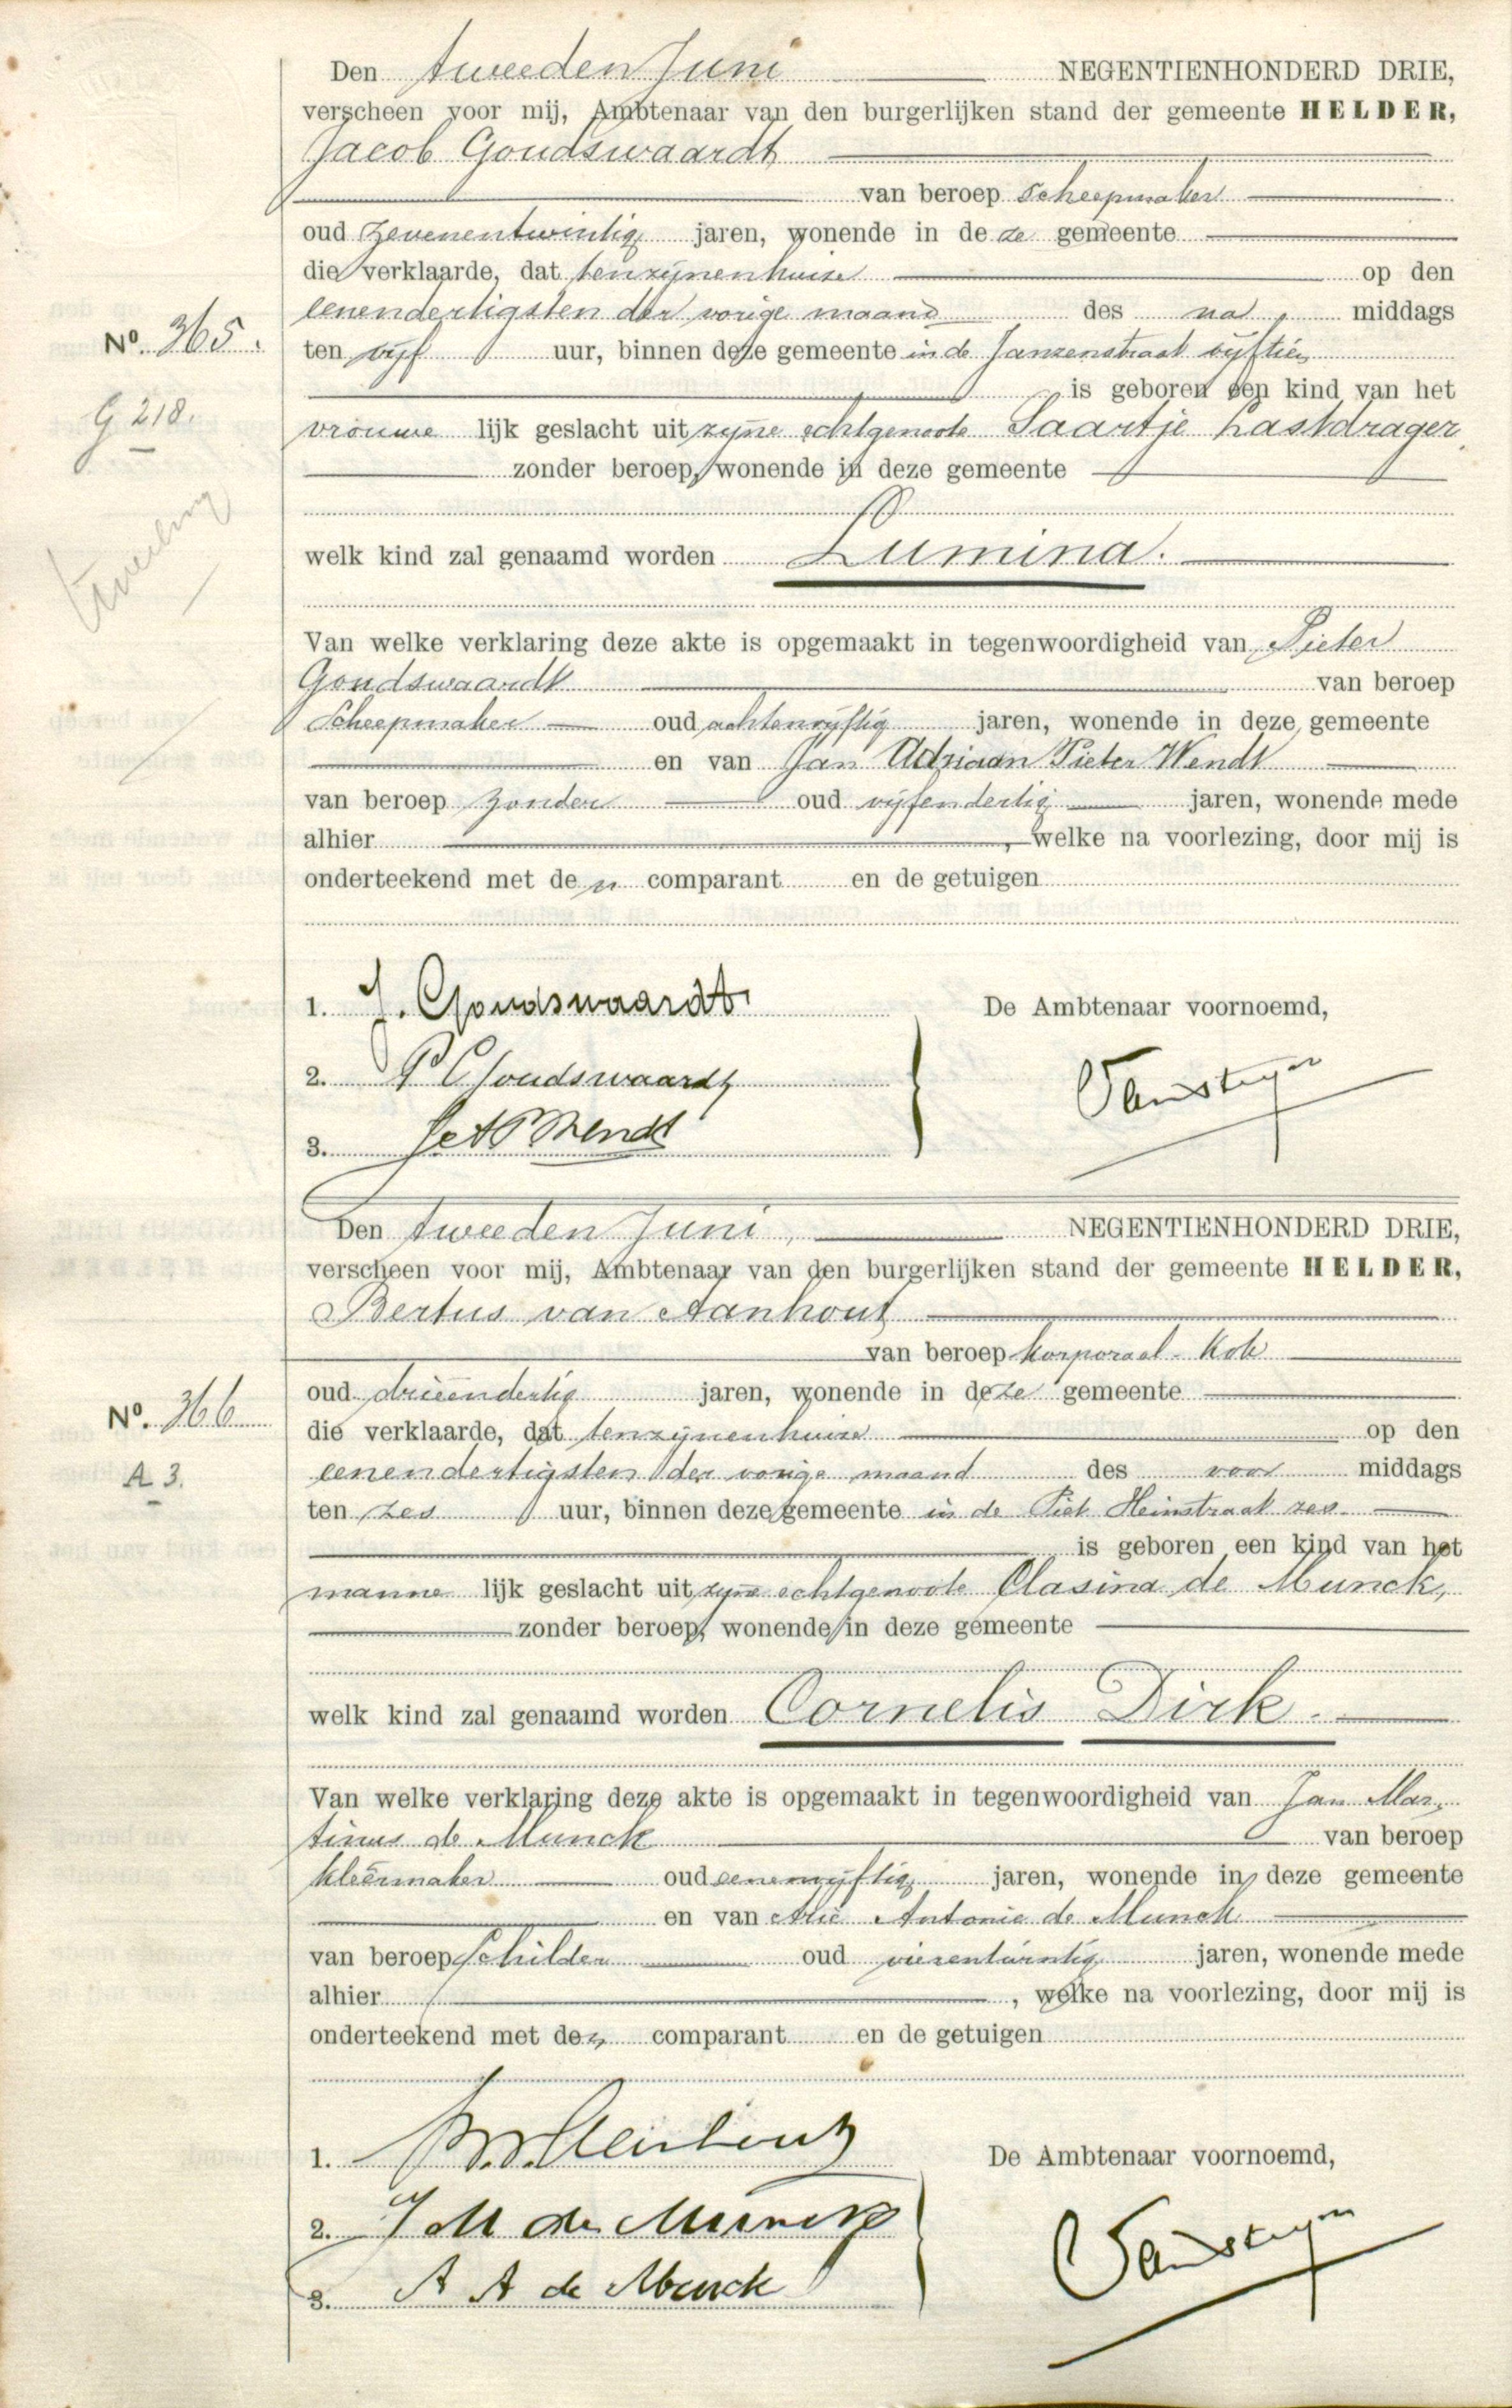 Den tweeden Juni NEGENTIENHONDERD DRIE,
verscheen voor mij, Ambtenaar van den burgerlijken stand der gemeente HELDER,
Jacob Goudswaardt
van beroep Scheepmaker
oud zevenentwintig jaren, wonende in deze gemeente
die verklaarde, dat tenzijnenhuize op den
eenendertigsten der vorige maand des na middags
ten vijf uur, binnen deze gemeente in de Janzenstraat vijftien
is geboren een kind van het
vrouwe lijk geslacht uit zijne echtgenoote Saartje Lastdrager,
zonder beroep, wonende in deze gemeente
welk kind zal genaamd worden Lumina.
Van welke verklaring deze akte is opgemaakt in tegenwoordigheid van Pieter
Goudswaardt van beroep
Scheepmaker oud achtenvijftig jaren, wonende in deze gemeente
en van Jan Adriaan Pieter Wendt
van beroep zonder oud vijfendertig jaren, wonende mede
alhier, welke na voorlezing, door mij is
onderteekend met den comparant en de getuigen
No. 365.
G 218.
tweeling
1. J. Goudswaardt
De Ambtenaar voornoemd,
2. P Goudswaardt
3. J A P Wendt
Den tweeden Juni, NEGENTIENHONDERD DRIE,
verscheen voor mij, Ambtenaar van den burgerlijken stand der gemeente HELDER,
Bertus van Aanhout
van beroep korporaal-kok
oud drieëndertig jaren, wonende in deze gemeente
die verklaarde, dat tenzijnenhuize op den
eenendertigsten der vorige maand des voor middags
ten zes uur, binnen deze gemeente in de Piet Heinstraat zes.
is geboren een kind van het
manne lijk geslacht uit zijne echtgenoote Clasina de Munck,
zonder beroep, wonende in deze gemeente
welk kind zal genaamd worden Cornelis Dirk.
Van welke verklaring deze akte is opgemaakt in tegenwoordigheid van Jan Mar-
tinus de Munck van beroep
kleermaker oud eenenvijftig jaren, wonende in deze gemeente
en van Arie Antonie de Munck
van beroep Schilder oud vierentwintig jaren, wonende mede
alhier, welke na voorlezing, door mij is
onderteekend met den comparant en de getuigen
No. 366
A 3.
1. B.v. Aanhout
De Ambtenaar voornoemd,
2. J M de Munck
3. A A de Munck